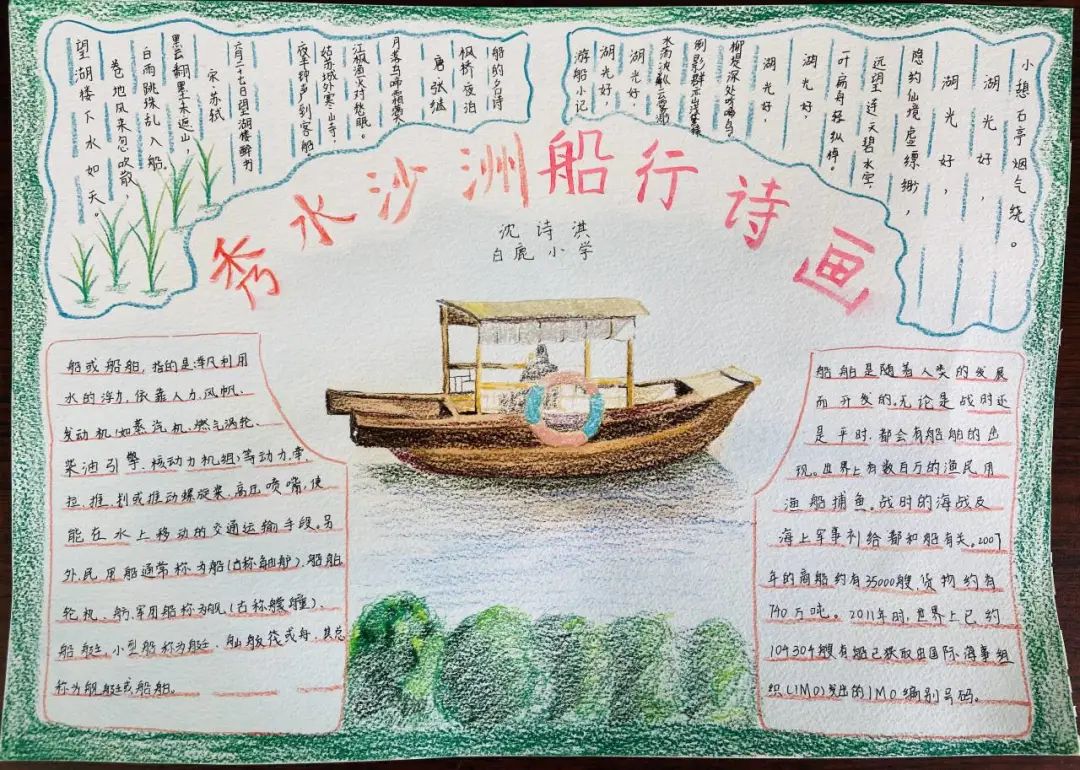 秀水沙洲船行诗画
沈诗洪
白鹿小学
船的古诗
枫桥夜泊
唐 张继
月落乌啼霜满天
江枫渔火对愁眠。
姑苏城外寒山寺，
夜半钟声到客船
六月二十七日望湖楼醉书
宋·苏轼
黑云翻墨未遮山，
白雨跳珠乱入船。
卷地风来忽吹散，
望湖楼下水如天。
小憩石亭烟气绕。
湖光好，
湖光好，
隐约仙境虚缥缈，
远望连天碧水空，
一叶扁舟轻纵棹。
湖光好，
湖光好，
柳堤深处
倒影群
水面波
湖光好，
湖光好，
游船小记
船或船舶，指的是：
水的浮力，依靠人力、风帆、
发动机(如蒸汽机、燃气涡轮、
柴油引擎、核动力机组)等动力，牵、
拉、推、划或推动螺旋桨、高压喷嘴，使
能在水上移动的交通运输手段。另
外，民用船通常称为船(古称舳舻)、船舶、
轮机、舫，军用船称为舰(古称艨艟)、
船艇，小型船称为艇、舢舨、筏或舟，其总
称为舰艇或船舶。
船舶是随着人类的发展
而开发的，无论是战时还
是平时，都会有船舶的出
现。世界上有数百万的渔民用
渔船捕鱼。战时的海战及
海上军事补给都和船有关。2007
年的商船约有35000艘，货物约有
740万吨。2011年时，世界上已约
104304艘有船已获取由国际海事组
织(IMO)发出的IMO编别号码。